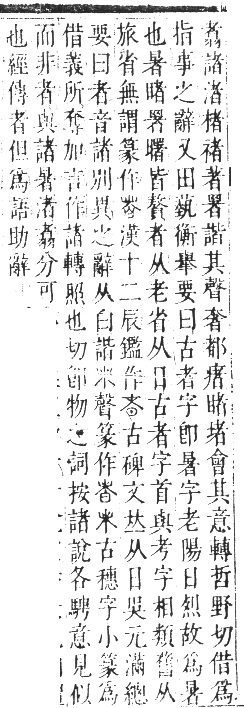 翥諸渚楮褚著署諧其聲奢都瘏睹堵會其意轉哲野切借爲
指事之辭又田藝衡舉要曰古者字卽暑字老陽日烈故爲暑
也暑睹署曙皆贅者从老省从日古者字首與考字相類舊从
旅省無謂篆作𣥐漢十二辰鑑作㫺古碑文𠀤从日吳元滿總
要曰者音諸別異之辭从白諧米聲篆作㫺米古穗字小篆爲
借義所奪加言作諸轉照也切卽物之詞按諸說各騁意見似
而非者與諸暑渚翥分可
也經傳者但爲語助辭